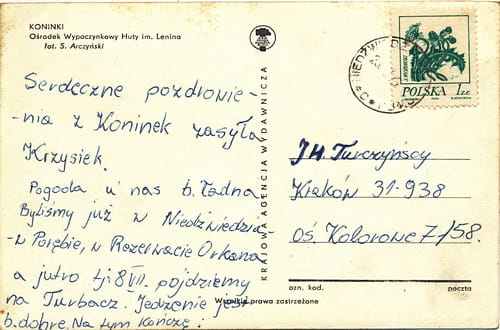 KONINKI
Ośrodek Wypoczynkowy Huty im. Lenina
fot. S. Arczyński
Serdeczne pozdrowie-
-nia z Koninek zasyła
Krzysiek.
Pogoda u nas b. ładna
Byliśmy już w Niedźwiedziu
-w Porębie, w Rezerwacie Orkana
a jutro tj. 8 VII. pojdziemy
na Turbacz. Jedzenie jest
b. dobre. Na tym kończę!
KRAJOWA AGENCJA WYDAWNICZA
POLSKA 1 ZŁ
J.H. Turczyńscy
Kraków 31-938
oś. Kolorowe 7/58.
ozn. kod.
poczta
Wszelkie prawa zastrzeżone